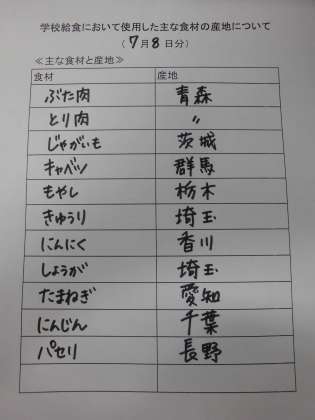 学校給食において使用した主な食材の産地について
（7月8日分）
≪主な食材と産地≫
食材 産地
ぶた肉 青森
とり肉 〃
じゃがいも 茨城
キャベツ 群馬
もやし 栃木
きゅうり 埼玉
にんにく 香川
しょうが 埼玉
たまねぎ 愛知
にんじん 千葉
パセリ 長野